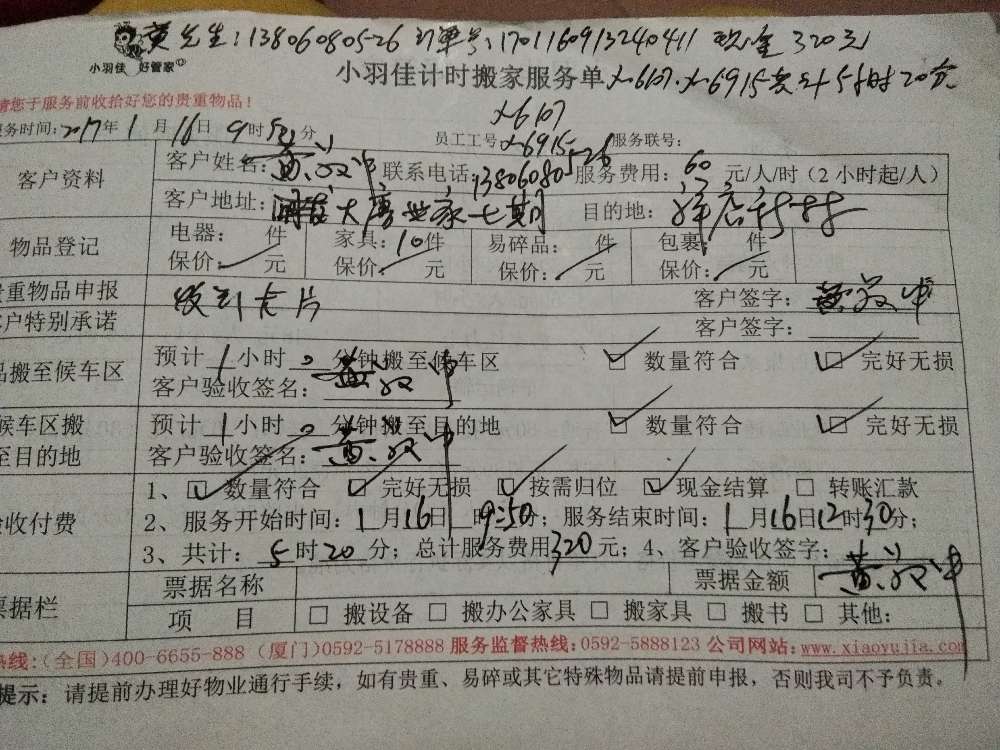 黄先生:13806080526 订单号:170116091324041​1 现金320元
小羽佳 好管家
小羽佳计时搬家服务单 X-6107.X-6915共计5小时20分
请您于服务前收拾好您的贵重物品!
X-6107
服务时间:2017年1月16日9时50分 员工工号:X-6915 服务联号:
客户资料 客户姓名: 黄 联系电话:13806080526 服务费用:60元/人/时(2小时起/人)
客户地址: 大唐世家七期 目的地:
物品登记 电器: 件 家具:10件 易碎品: 件 包裹: 件
保价: 元 保价: 元 保价: 元 保价: 元
贵重物品申报 收到卡片 客户签字: 黄
客户特别承诺 客户签字:
品搬至候车区 预计1小时0分钟搬至候车区 ☑ 数量符合 ☑ 完好无损
客户验收签名: 黄
候车区搬至目的地 预计1小时0分钟搬至目的地 ☑ 数量符合 ☑ 完好无损
客户验收签名: 黄
验收付费 1、☑ 数量符合 ☑ 完好无损 ☑ 按需归位 ☑ 现金结算 □ 转账汇款
2、服务开始时间:1月16日9:50分;服务结束时间:1月16日12时30分;
3、共计:5时20分;总计服务费用320元;4、客户验收签字: 黄
票据栏 票据名称 票据金额
项 目 □ 搬设备 □ 搬办公家具 □ 搬家具 □ 搬书 □ 其他:
热线:(全国)400-6655-888 (厦门)0592-5178888 服务监督热线:0592-5888123 公司网站:www.xiaoyujia.com
提示:请提前办理好物业通行手续,如有贵重、易碎或其它特殊物品请提前申报,否则我司不予负责。